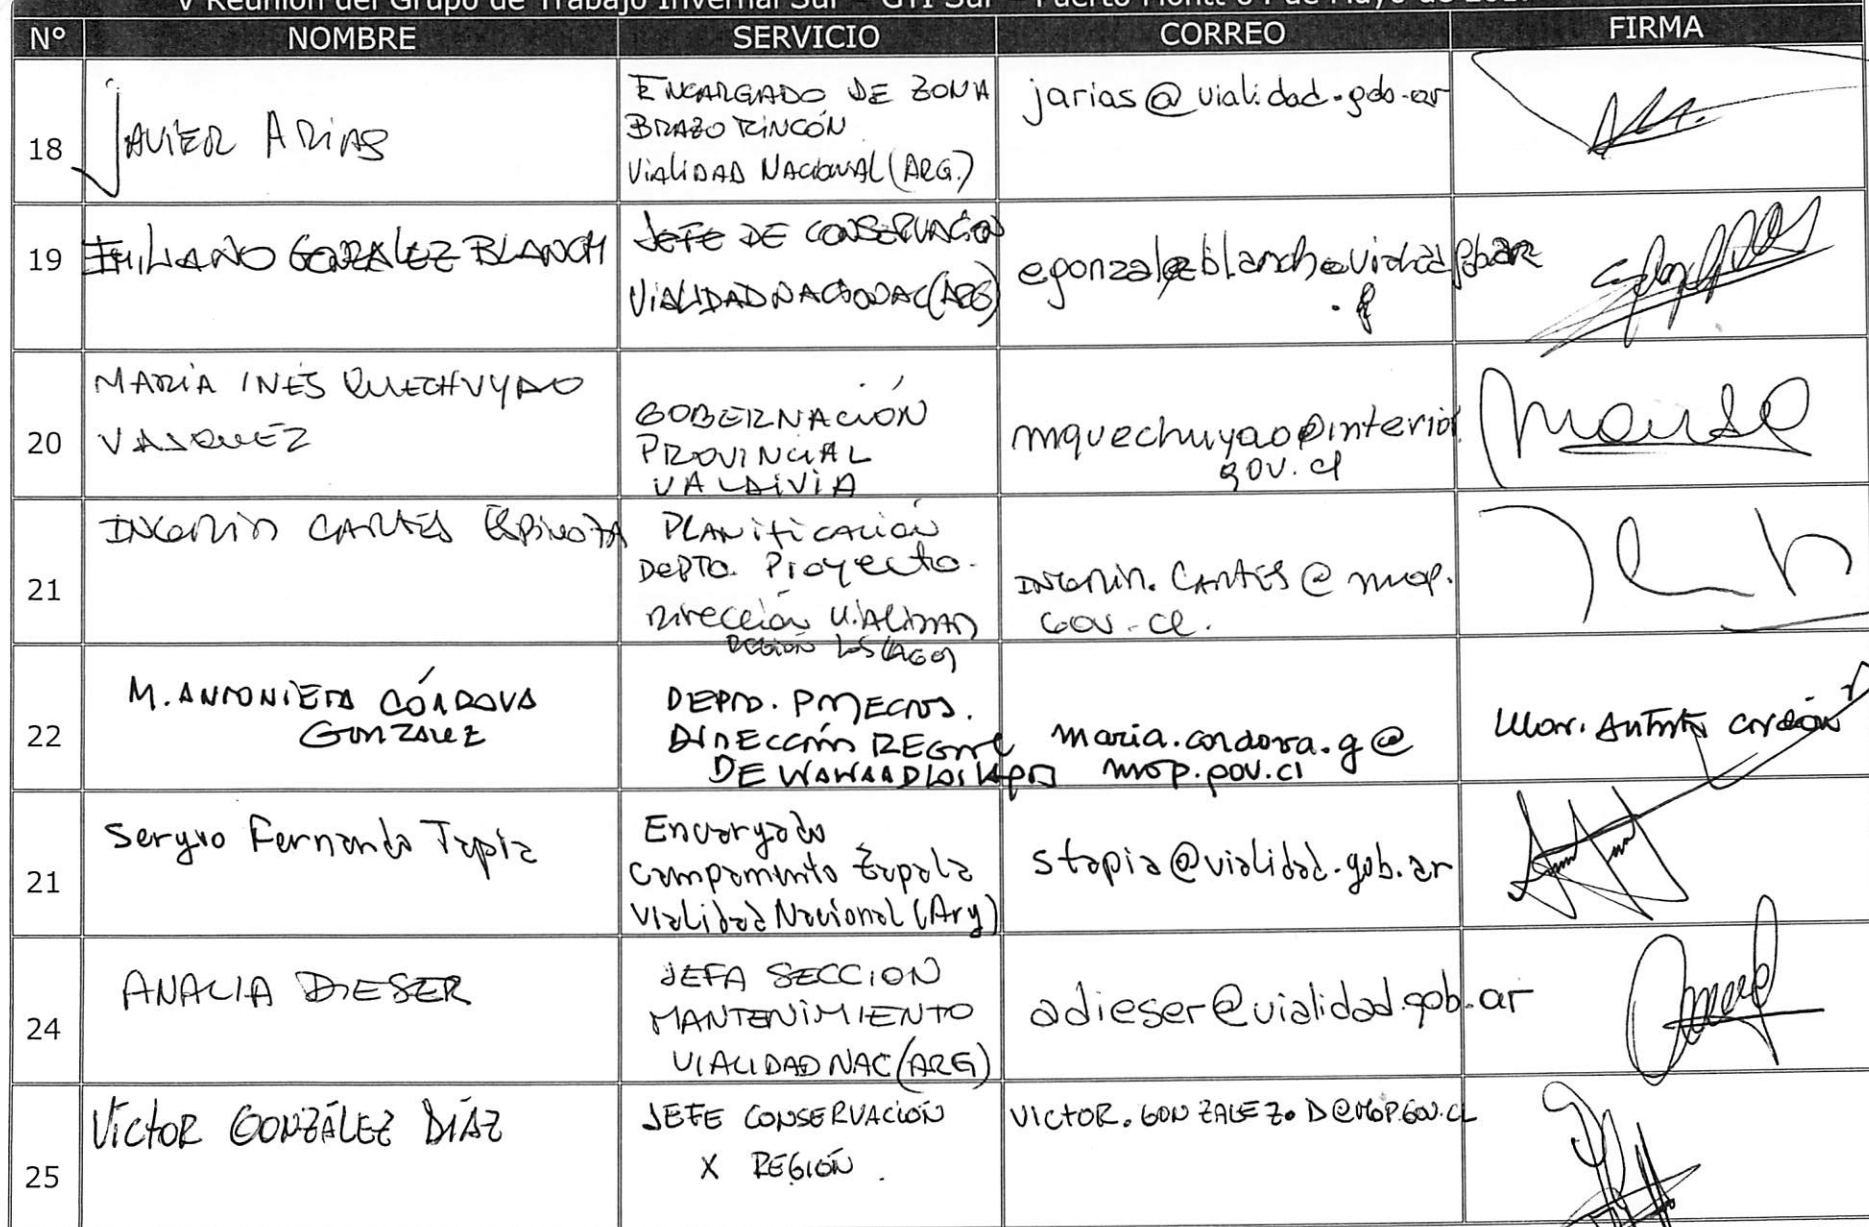 V Reunión del Grupo de Trabajo Invernal Sur - GTI Sur - Puerto Montt 6
N° NOMBRE SERVICIO CORREO FIRMA
18
JAVIER ARIAS
ENCARGADO DE ZONA
BRAZO RINCÓN
VIALIDAD NACIONAL (ARG.)
jarias@vialidad.gob.ar
19
EMILIANO GONZALEZ BLANCH
JEFE DE CONSERVACION
VIALIDAD NACIONAL (ARG)
egonzalezblanch@vialidad.gob.ar
20
MARÍA INÉS QUECHUYAO
VASQUEZ
GOBERNACIÓN
PROVINCIAL
VALDIVIA
mquechuyao@interior
gov.cl
21
CARTES ESPINOZA
PLANIFICACIÓN
DEPTO. Proyecto.
Dirección VIALIDAD
REGIÓN LOS LAGOS
CARTES @ mop.
GOV.CL.
22
M. ANTONIETA CÓRDOVA
GONZALEZ
DEPTO. PROYECTOS.
DIRECCIÓN REGIONAL
DE VIALIDAD LOS LAGOS
maria.cordova.g@
mop.gov.cl
21
Sergio Fernando Tapia
Encargado
Campamento Zapala
Vialidad Nacional (Arg)
stapia@vialidad.gob.ar
24
ANALIA DIESER
JEFA SECCION
MANTENIMIENTO
VIALIDAD NAC (ARG)
adieser@vialidad.gob.ar
25
VÍCTOR GONZÁLEZ DÍAZ
JEFE CONSERVACIÓN
X REGIÓN.
VICTOR.GONZALEZ.D@MOP.GOV.CL